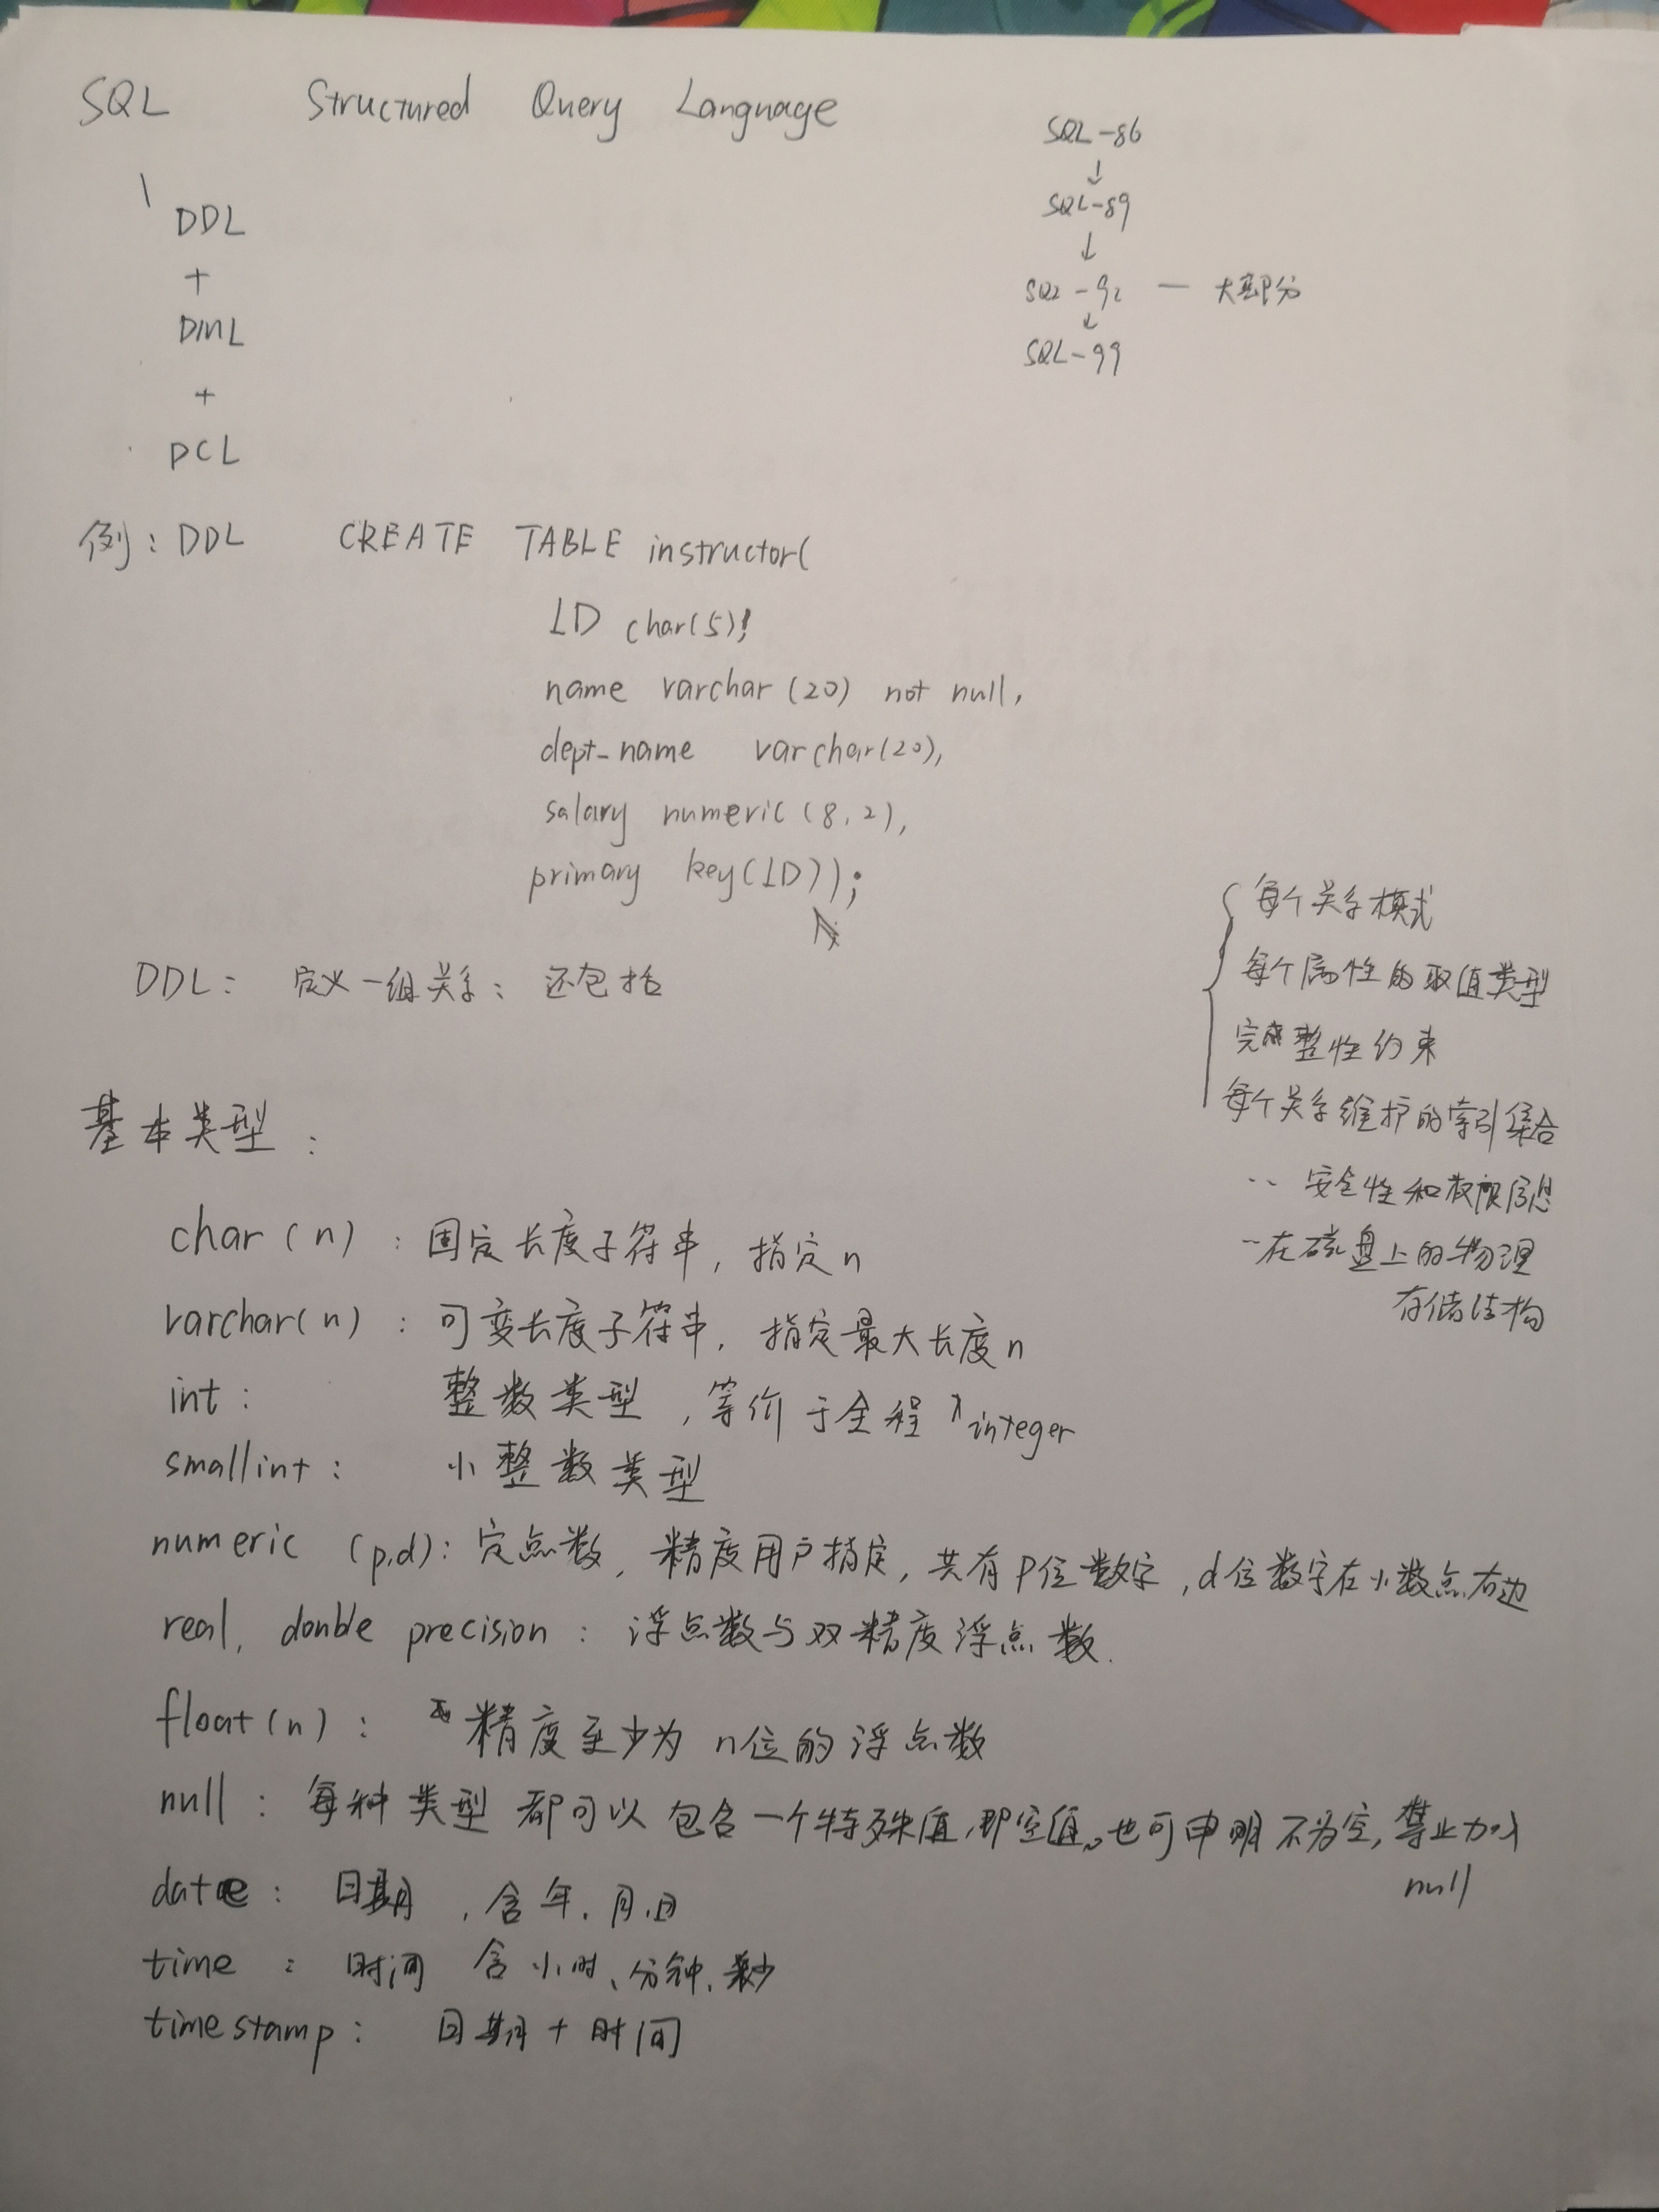 SQL Structured Query Language
SQL-86
↓
SQL-89
↓
SQL-92 — 大部分
↓
SQL-99
\
DDL
+
DML
+
DCL
例: DDL CREATE TABLE instructor(
ID char(5),
name varchar(20) not null,
dept_name varchar(20),
salary numeric(8,2),
primary key(ID));
DDL: 定义一组关系; 还包括
每个关系模式
每个属性的取值类型
完整性约束
每个关系维护的索引集合
‥ 安全性和权限信息
‥在磁盘上的物理
存储结构
基本类型:
char(n): 固定长度字符串, 指定n
varchar(n): 可变长度字符串, 指定最大长度n
int: 整数类型, 等价于全程 integer
smallint: 小整数类型
numeric (p,d): 定点数, 精度用户指定, 共有p位数字, d位数字在小数点右边
real, double precision: 浮点数与双精度浮点数.
float(n): 精度至少为n位的浮点数
null: 每种类型都可以包含一个特殊值,即空值。也可申明不为空, 禁止加入
null
date: 日期, 含年、月、日
time: 时间 含小时、分钟、秒
timestamp: 日期+时间